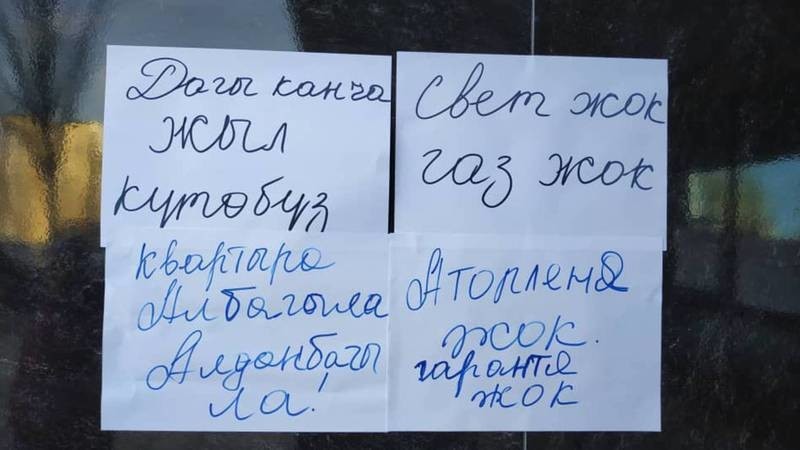 Дагы канча
жыл
кутобуз
Свет жок
газ жок
квартыра
Албагыла
Алданбагы
ла!
Аторленя
жок.
гарантя
жок